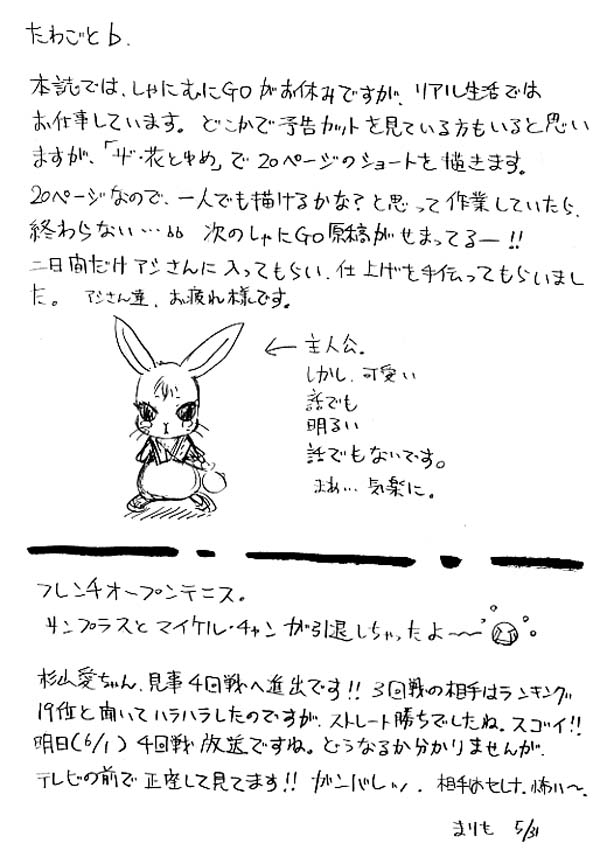 たわごと♭.
本誌では、しゃにむにGOがお休みですが、リアル生活では
お仕事しています。どこかで予告カットを見ている方もいると思い
ますが、「ザ・花とゆめ」で20ページのショートを描きます。
20ページなので、一人でも描けるかな?と思って作業していたら、
終わらない…♭♭ 次のしゃにGO原稿がせまってるー!!
二日間だけアシさんに入ってもらい、仕上げを手伝ってもらいまし
た。アシさん達、お疲れ様です。
← 主人公。
しかし、可愛い
話でも
明るい
話でもないです。
まぁ…気楽に。
フレンチオープンテニス。
サンプラスとマイケル・チャンが引退しちゃったよ〜〜
杉山愛ちゃん、見事4回戦へ進出です!! 3回戦の相手はランキング
19位と聞いてハラハラしたのですが、ストレート勝ちでしたね。スゴイ!!
明日(6/1)4回戦放送ですね。どうなるか分かりませんが、
テレビの前で正座して見てます!! がンバしぃ、相手はセレナ、怖い〜。
まりも 5/31